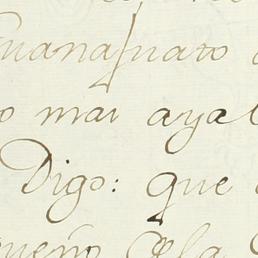 Guanajuato
o mai ayal
Digo: que
queño Ella